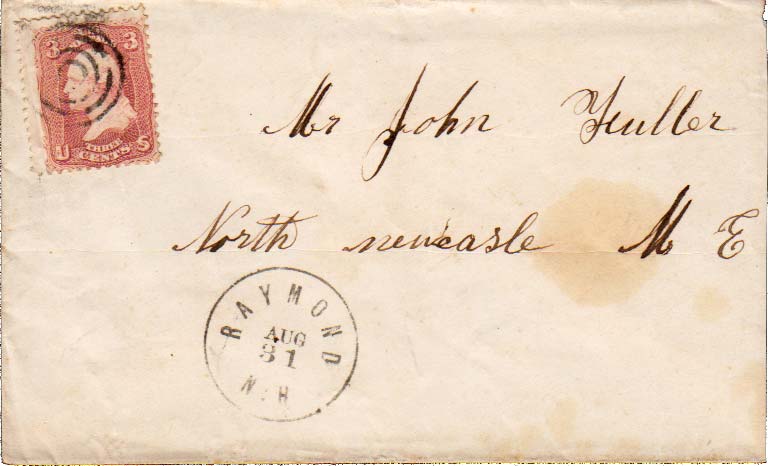 3 3
U THREE CENTS S
Mr John Fuller
North newcasle M E
RAYMOND
AUG
31
N.H.